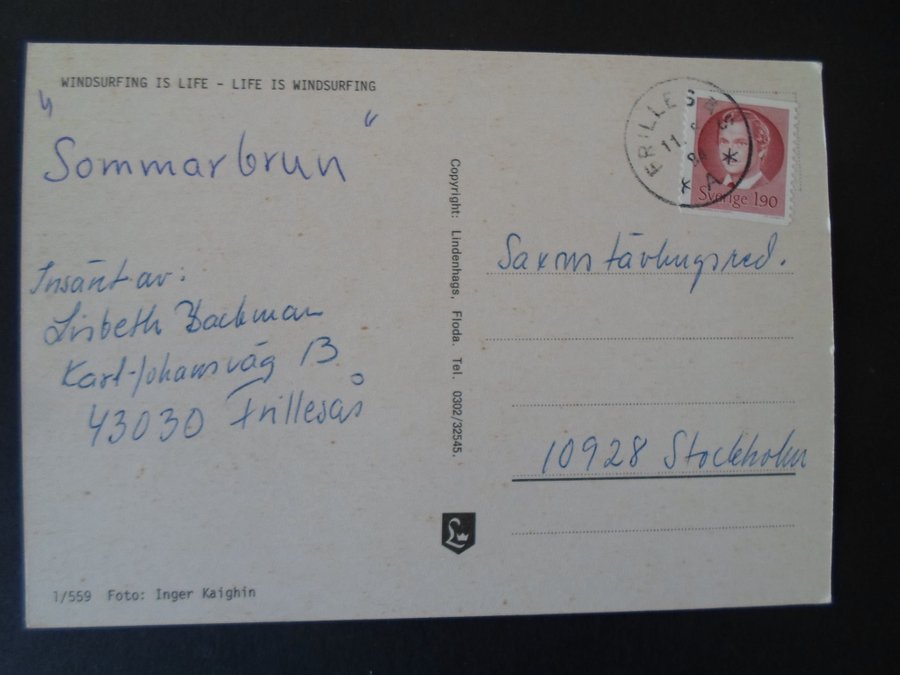 WINDSURFING IS LIFE - LIFE IS WINDSURFING
"Sommarbrun"
Insänt av:
Lisbeth Backman
Karl-Johansväg 13
43030 Frillesås
1/559 Foto: Inger Kaighin
Copyright: Lindenhags, Floda. Tel. 0302/32545.
L
FRILLESÅS
11.
84
A
Sverige 190
Saxons tävlingsred.
10928 Stockholm